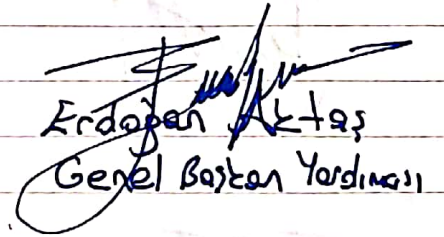 Erdoğan Aktaş
Genel Başkan Yardımcısı